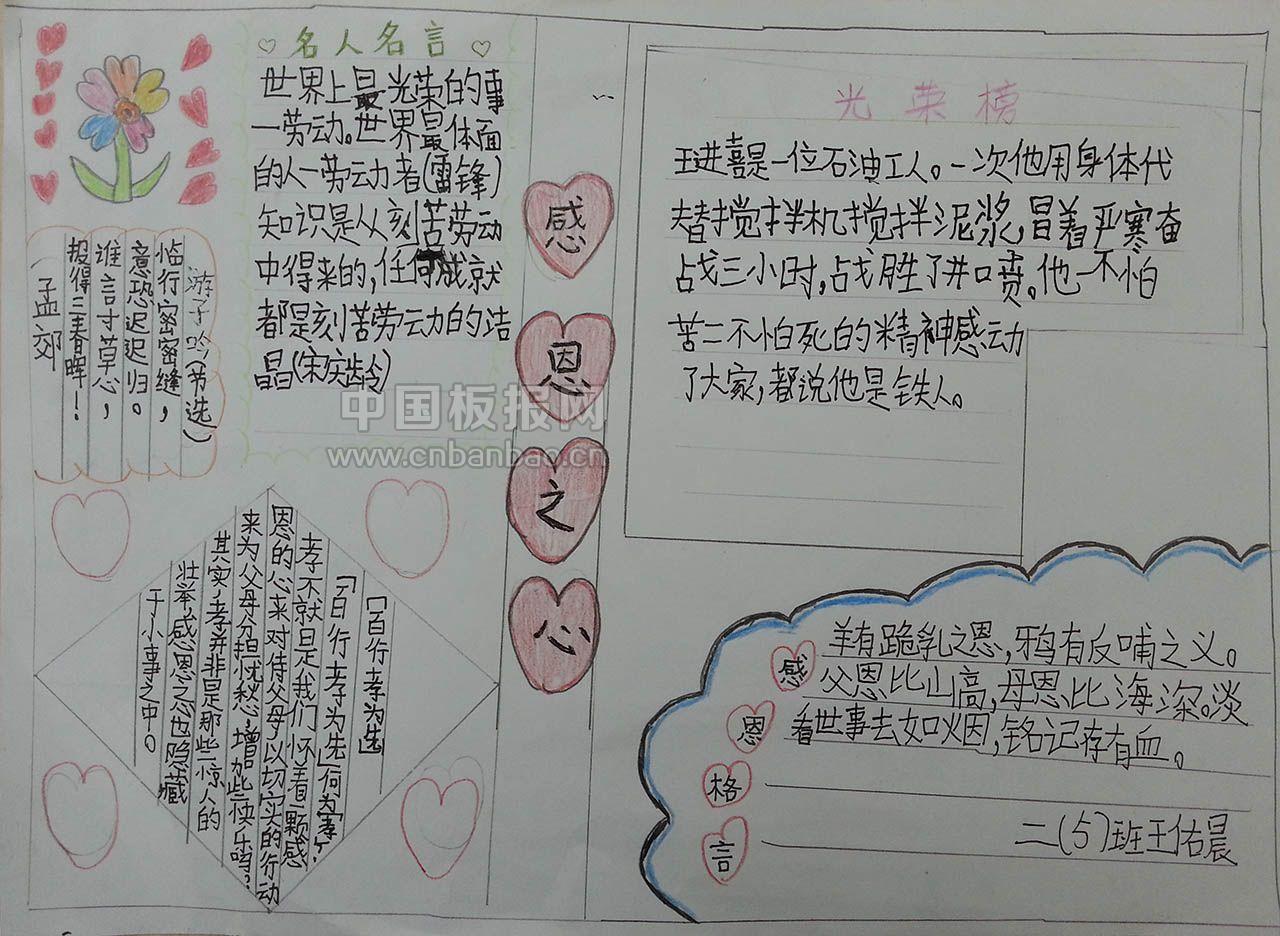 名人名言
世界上最光荣的事
一劳动。世界最体面
的人一劳动者(雷锋)
知识是从刻苦劳动
中得来的,任何成就
都是刻苦劳动的洁
晶(宋庆龄)
游子吟(节选)
临行密密缝,
意恐迟迟归。
谁言寸草心,
报得三春晖!
(孟郊
感
恩
之
心
光荣榜
王进喜是一位石油工人。一次他用身体代
替搅拌机搅拌泥浆,冒着严寒奋
战三小时,战胜了井口喷。他一不怕
苦二不怕死的精神感动
了大家,都说他是铁人。
中国板报网
www.cnbanbao.cn
「百行孝为先」
「百行孝为先」何为孝?
孝不就是我们怀着一颗感
恩的心来对待父母以切实的行动
来为父母分担忧愁,增加些快乐吗?
其实,孝并非是那些惊人的
壮举,感恩之心也隐藏
于小事之中。
感
恩
格
言
羊有跪乳之恩,鸦有反哺之义。
父恩比山高,母恩比海深。淡
看世事去如烟,铭记存有血。
二(5)班王佑晨